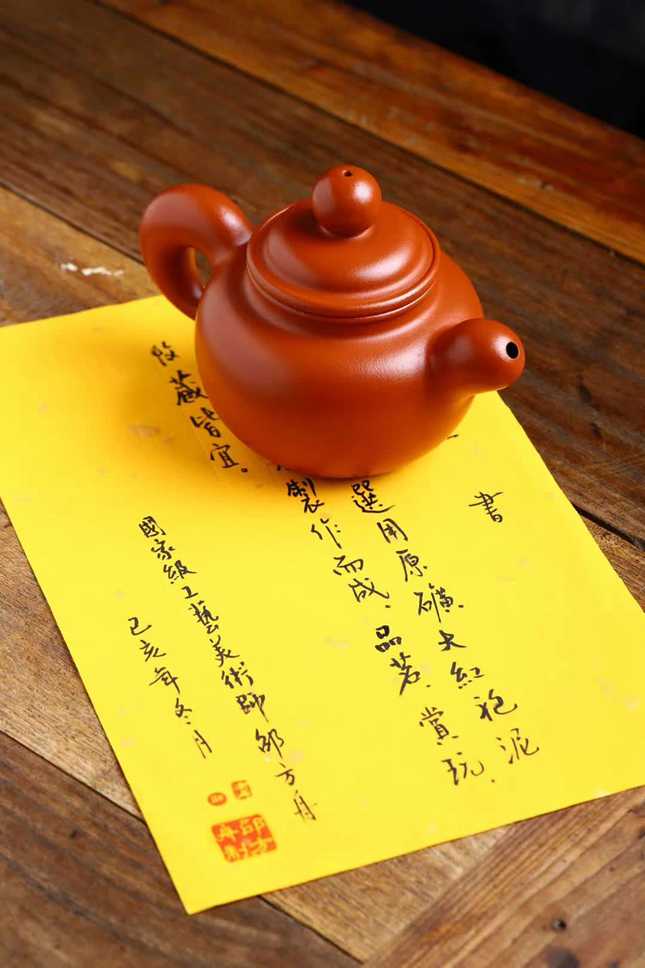 書
選用原礦大紅袍泥
製作而成,品茗,賞玩,
收藏皆宜。
國家級工藝美術師邵方舟
己亥年冬月